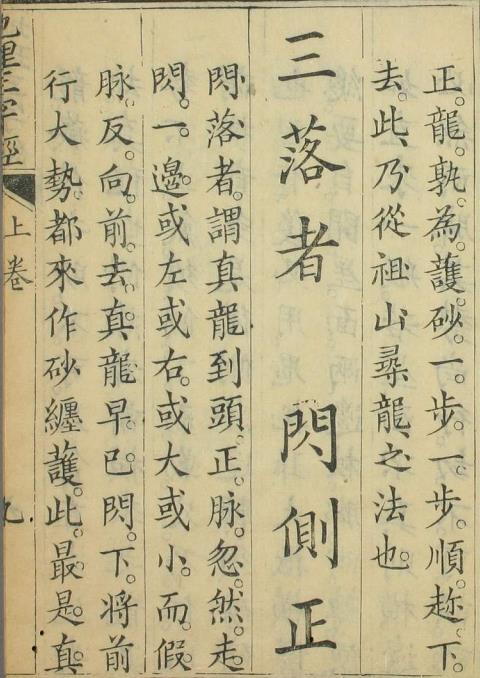 正龍。孰為護砂。一。步。一。步。順。趂。下。
去。此乃從祖山尋龍之法也。
三落者　閃側正
閃落者。謂真龍到頭。正。脉。忽。然。走。
閃。一。邊。或左或右。或大或小。而。假。
脉。反。向。前。去。真。龍。早。已。閃。下。將前
行大勢。都來作砂纏護。此。最。是。真。
地理三字經
上卷
九